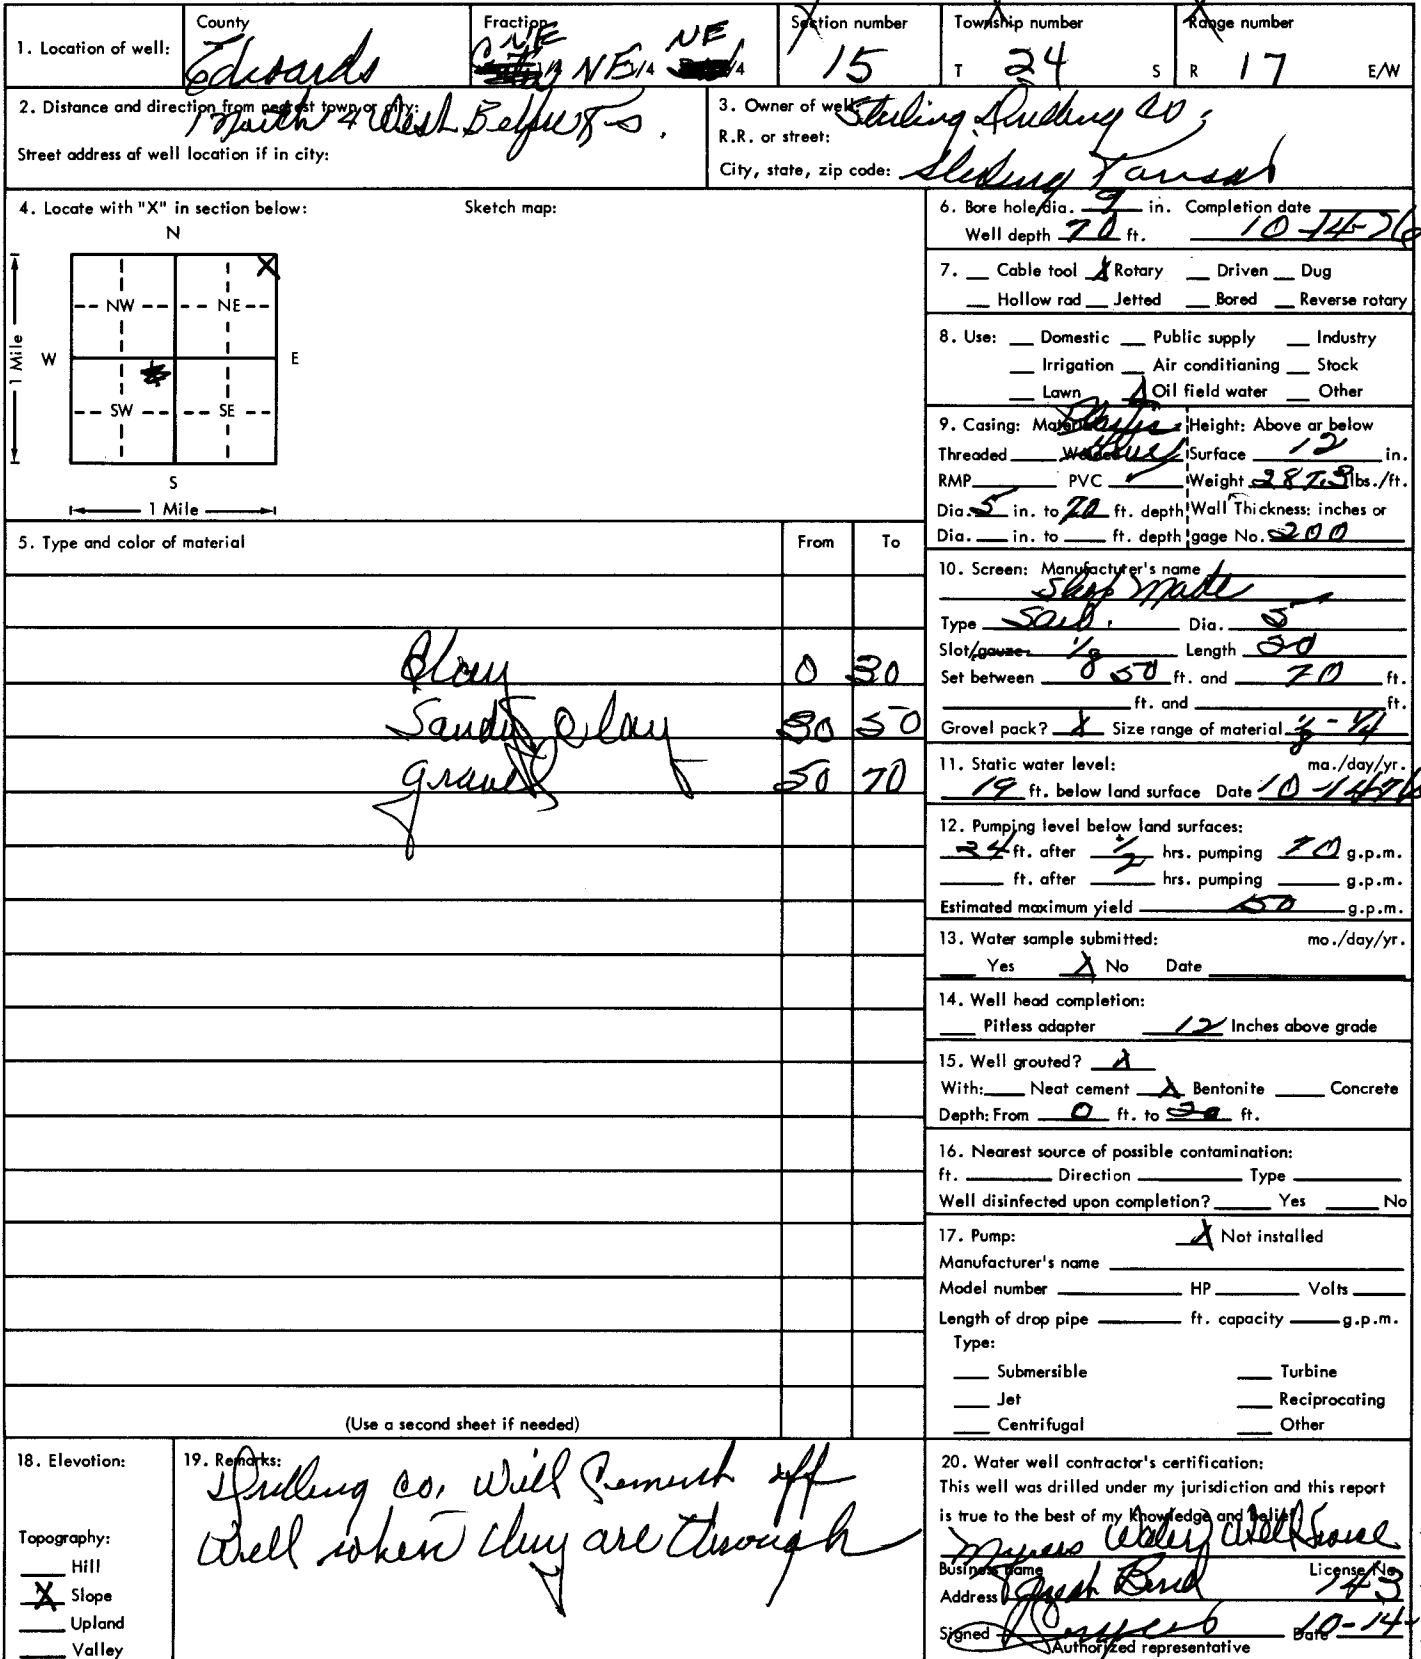 1. Location of well:
County
Edwards
Fraction
NE NE
1/4 NE 1/4 1/4
Section number
15
Township number
T 24 S
Range number
R 17 E/W
2. Distance and direction from nearest town or city:
North & West Belpre Ks.
Street address of well location if in city:
3. Owner of well: Sterling Drilling Co,
R.R. or street:
City, state, zip code: Sterling Kansas
4. Locate with "X" in section below:
Sketch map:
N
X
NW NE
1 Mile
W E
SW SE
S
1 Mile
5. Type and color of material From To
Clay 0 30
Sandy Clay 30 50
Gravel 50 70
(Use a second sheet if needed)
6. Bore hole dia. 9 in. Completion date
Well depth 70 ft. 10-14-76
7. Cable tool X Rotary Driven Dug
Hollow rod Jetted Bored Reverse rotary
8. Use: Domestic Public supply Industry
Irrigation Air conditioning Stock
Lawn X Oil field water Other
9. Casing: Material Plastic Height: Above or below
Threaded Welded Glued Surface 12 in.
RMP PVC ✓ Weight 287.3 lbs./ft.
Dia. 5 in. to 70 ft. depth Wall Thickness: inches or
Dia. in. to ft. depth gage No. 200
10. Screen: Manufacturer's name
Shop Made
Type Dia. 5
Slot/gauze 1/8 Length 20
Set between 50 ft. and 70 ft.
ft. and ft.
Gravel pack? X Size range of material 1/8 - 1/4
11. Static water level: mo./day/yr.
19 ft. below land surface Date 10-14-76
12. Pumping level below land surfaces:
24 ft. after 1/2 hrs. pumping 70 g.p.m.
ft. after hrs. pumping g.p.m.
Estimated maximum yield g.p.m.
13. Water sample submitted: mo./day/yr.
Yes X No Date
14. Well head completion:
Pitless adapter 12 Inches above grade
15. Well grouted? X
With: Neat cement X Bentonite Concrete
Depth: From 0 ft. to 20 ft.
16. Nearest source of possible contamination:
ft. Direction Type
Well disinfected upon completion? Yes No
17. Pump: X Not installed
Manufacturer's name
Model number HP Volts
Length of drop pipe ft. capacity g.p.m.
Type:
Submersible Turbine
Jet Reciprocating
Centrifugal Other
18. Elevation:
Topography:
Hill
X Slope
Upland
Valley
19. Remarks:
Drilling Co. Will Cement off
Well when they are through
20. Water well contractor's certification:
This well was drilled under my jurisdiction and this report
is true to the best of my knowledge and belief.
Myers Water Well Service
Business name License No.
Address Great Bend 143
Signed Myers Date 10-14-
Authorized representative